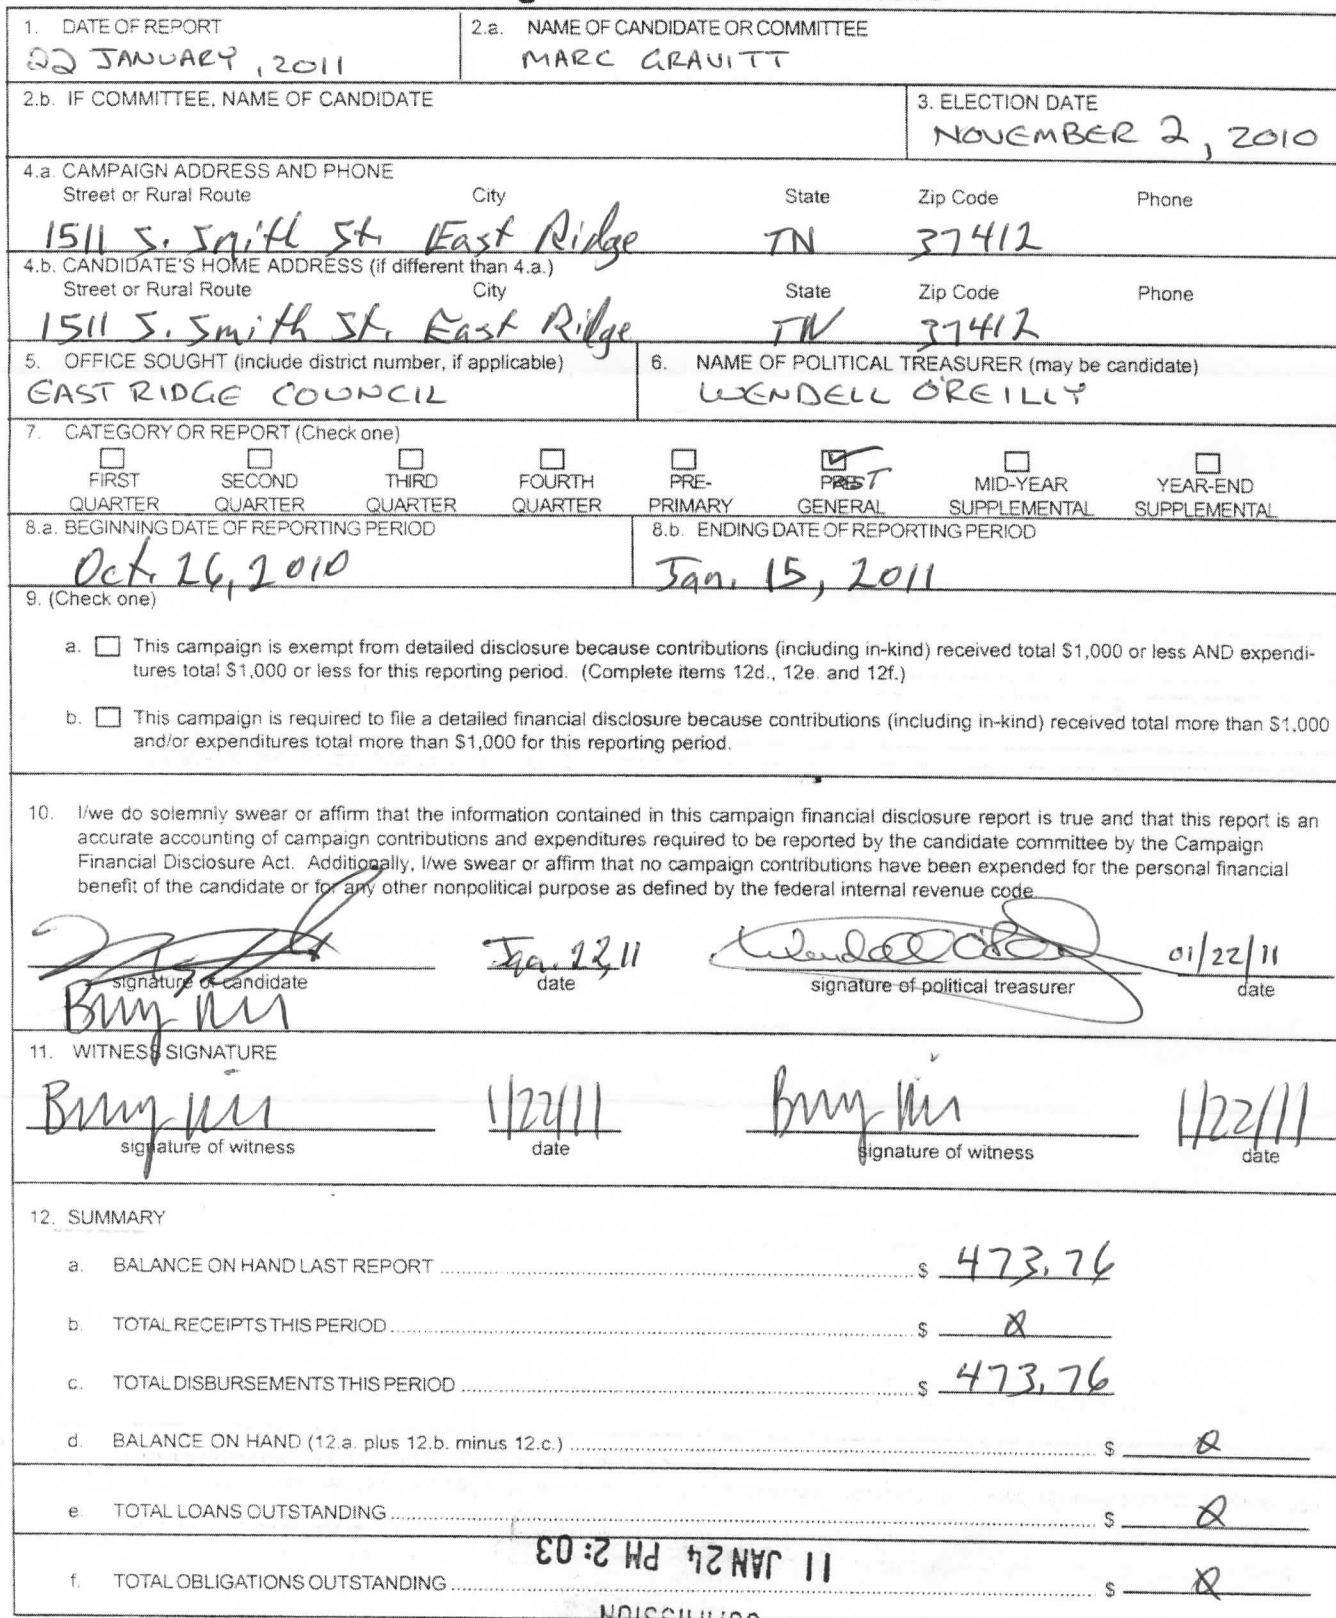 1. DATE OF REPORT
22 JANUARY, 2011
2.a. NAME OF CANDIDATE OR COMMITTEE
MARC GRAVITT
2.b. IF COMMITTEE, NAME OF CANDIDATE
3. ELECTION DATE
NOVEMBER 2, 2010
4.a. CAMPAIGN ADDRESS AND PHONE
Street or Rural Route City State Zip Code Phone
1511 S. Smith St. East Ridge TN 37412
4.b. CANDIDATE'S HOME ADDRESS (if different than 4.a.)
Street or Rural Route City State Zip Code Phone
1511 S. Smith St. East Ridge TN 37412
5. OFFICE SOUGHT (include district number, if applicable)
EAST RIDGE COUNCIL
6. NAME OF POLITICAL TREASURER (may be candidate)
WENDELL O'REILLY
7. CATEGORY OR REPORT (Check one)
FIRST SECOND THIRD FOURTH PRE- POST MID-YEAR YEAR-END
QUARTER QUARTER QUARTER QUARTER PRIMARY GENERAL SUPPLEMENTAL SUPPLEMENTAL
8.a. BEGINNING DATE OF REPORTING PERIOD
Oct. 26, 2010
8.b. ENDING DATE OF REPORTING PERIOD
Jan. 15, 2011
9. (Check one)
a. This campaign is exempt from detailed disclosure because contributions (including in-kind) received total $1,000 or less AND expendi-
tures total $1,000 or less for this reporting period. (Complete items 12d., 12e. and 12f.)
b. This campaign is required to file a detailed financial disclosure because contributions (including in-kind) received total more than $1,000
and/or expenditures total more than $1,000 for this reporting period.
10. I/we do solemnly swear or affirm that the information contained in this campaign financial disclosure report is true and that this report is an
accurate accounting of campaign contributions and expenditures required to be reported by the candidate committee by the Campaign
Financial Disclosure Act. Additionally, I/we swear or affirm that no campaign contributions have been expended for the personal financial
benefit of the candidate or for any other nonpolitical purpose as defined by the federal internal revenue code.
Jan. 22, 11 Wendell O'Reilly 01/22/11
signature of candidate date signature of political treasurer date
11. WITNESS SIGNATURE
1/22/11 1/22/11
signature of witness date signature of witness date
12. SUMMARY
a. BALANCE ON HAND LAST REPORT $ 473.76
b. TOTAL RECEIPTS THIS PERIOD $ 0
c. TOTAL DISBURSEMENTS THIS PERIOD $ 473.76
d. BALANCE ON HAND (12.a. plus 12.b. minus 12.c.) $ 0
e. TOTAL LOANS OUTSTANDING $ 0
11 JAN 24 PM 2:03
f. TOTAL OBLIGATIONS OUTSTANDING $ 0